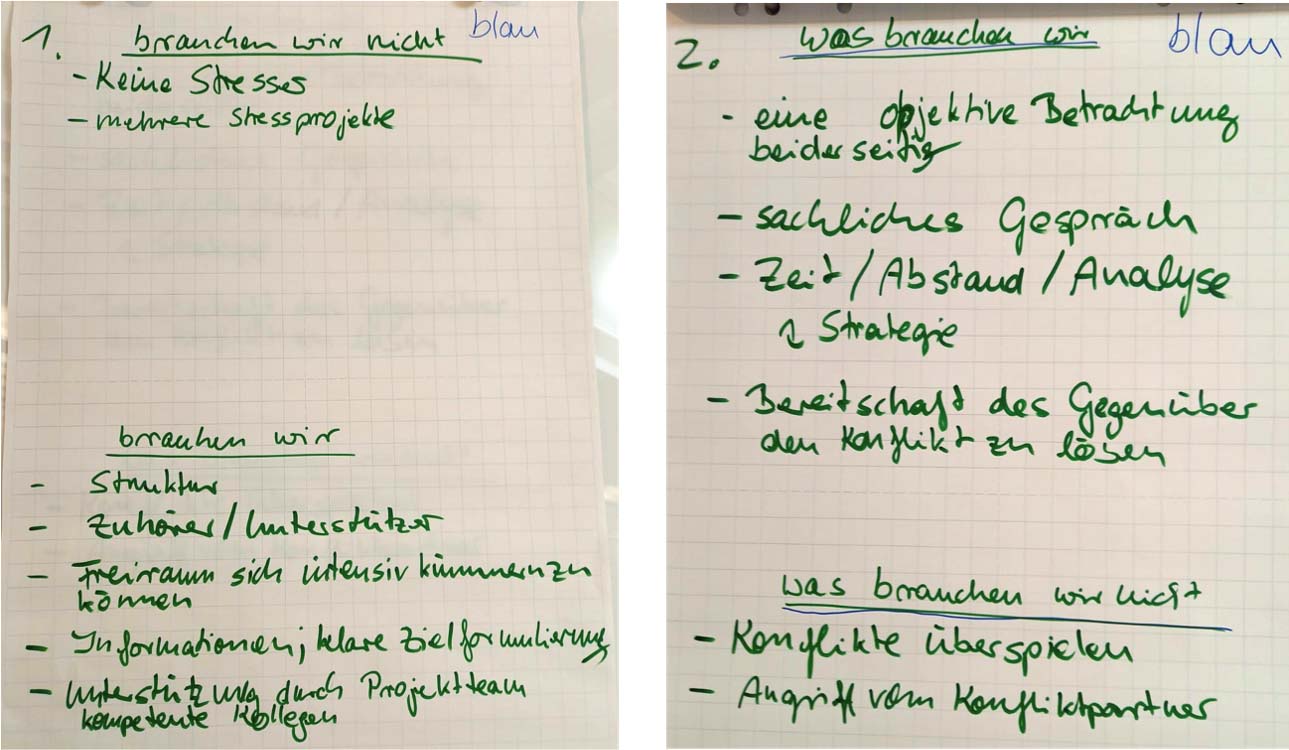 1. brauchen wir nicht blau
- Keine Stresses
- mehrere Stressprojekte
brauchen wir
- Struktur
- Zuhörer/Unterstützer
- Freiraum sich intensiv kümmern zu
können
- Informationen; klare Zielformulierung
- Unterstützung durch Projektteam
kompetente Kollegen
2. was brauchen wir blau
- eine objektive Betrachtung
beiderseitig
- sachliches Gespräch
- Zeit / Abstand / Analyse
↳ Strategie
- Bereitschaft des Gegenüber
den Konflikt zu lösen
was brauchen wir nicht
- Konflikte überspielen
- Angriff vom Konfliktpartner